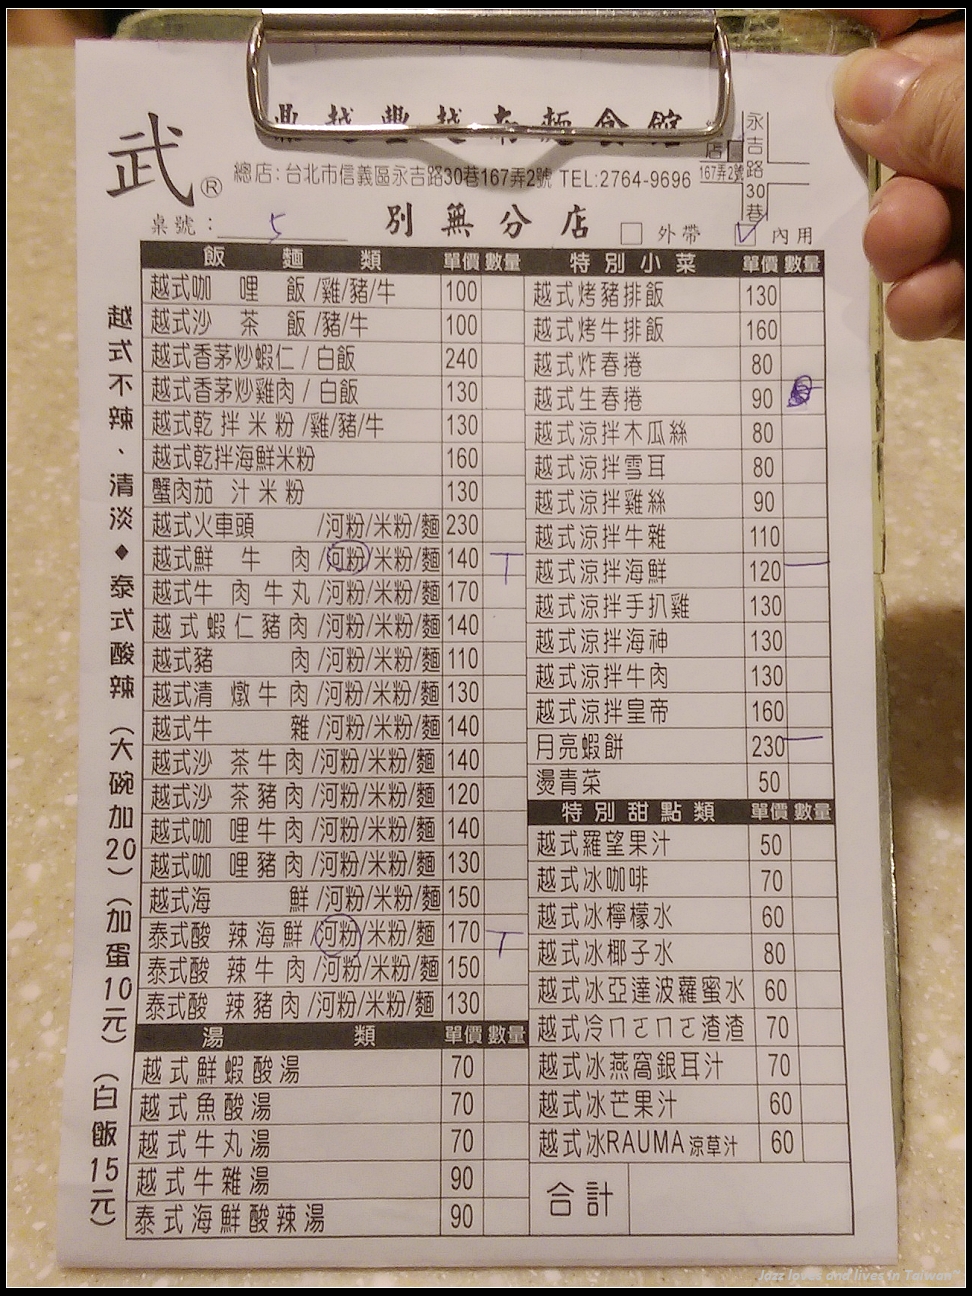 鼎越豐越南麵食館
武®
總店:台北市信義區永吉路30巷167弄2號 TEL:2764-9696
店
167弄2號
永吉路30巷
桌號: 5
別無分店
外帶 內用
越式不辣、清淡◆泰式酸辣（大碗加20）（加蛋10元）（白飯15元）
飯麵類 單價 數量
越式咖哩飯/雞/豬/牛 100
越式沙茶飯/豬/牛 100
越式香茅炒蝦仁/白飯 240
越式香茅炒雞肉/白飯 130
越式乾拌米粉/雞/豬/牛 130
越式乾拌海鮮米粉 160
蟹肉茄汁米粉 130
越式火車頭/河粉/米粉/麵 230
越式鮮牛肉/河粉/米粉/麵 140
越式牛肉牛丸/河粉/米粉/麵 170
越式蝦仁豬肉/河粉/米粉/麵 140
越式豬肉/河粉/米粉/麵 110
越式清燉牛肉/河粉/米粉/麵 130
越式牛雜/河粉/米粉/麵 140
越式沙茶牛肉/河粉/米粉/麵 140
越式沙茶豬肉/河粉/米粉/麵 120
越式咖哩牛肉/河粉/米粉/麵 140
越式咖哩豬肉/河粉/米粉/麵 130
越式海鮮/河粉/米粉/麵 150
泰式酸辣海鮮/河粉/米粉/麵 170
泰式酸辣牛肉/河粉/米粉/麵 150
泰式酸辣豬肉/河粉/米粉/麵 130
湯類 單價 數量
越式鮮蝦酸湯 70
越式魚酸湯 70
越式牛丸湯 70
越式牛雜湯 90
泰式海鮮酸辣湯 90
特別小菜 單價 數量
越式烤豬排飯 130
越式烤牛排飯 160
越式炸春捲 80
越式生春捲 90
越式涼拌木瓜絲 80
越式涼拌雪耳 80
越式涼拌雞絲 90
越式涼拌牛雜 110
越式涼拌海鮮 120 一
越式涼拌手扒雞 130
越式涼拌海神 130
越式涼拌牛肉 130
越式涼拌皇帝 160
月亮蝦餅 230 一
燙青菜 50
特別甜點類 單價 數量
越式羅望果汁 50
越式冰咖啡 70
越式冰檸檬水 60
越式冰椰子水 80
越式冰亞達波蘿蜜水 60
越式冷ㄇㄛㄇㄛ渣渣 70
越式冰燕窩銀耳汁 70
越式冰芒果汁 60
越式冰RAUMA涼草汁 60
合計
Jazz loves and lives in Taiwan~